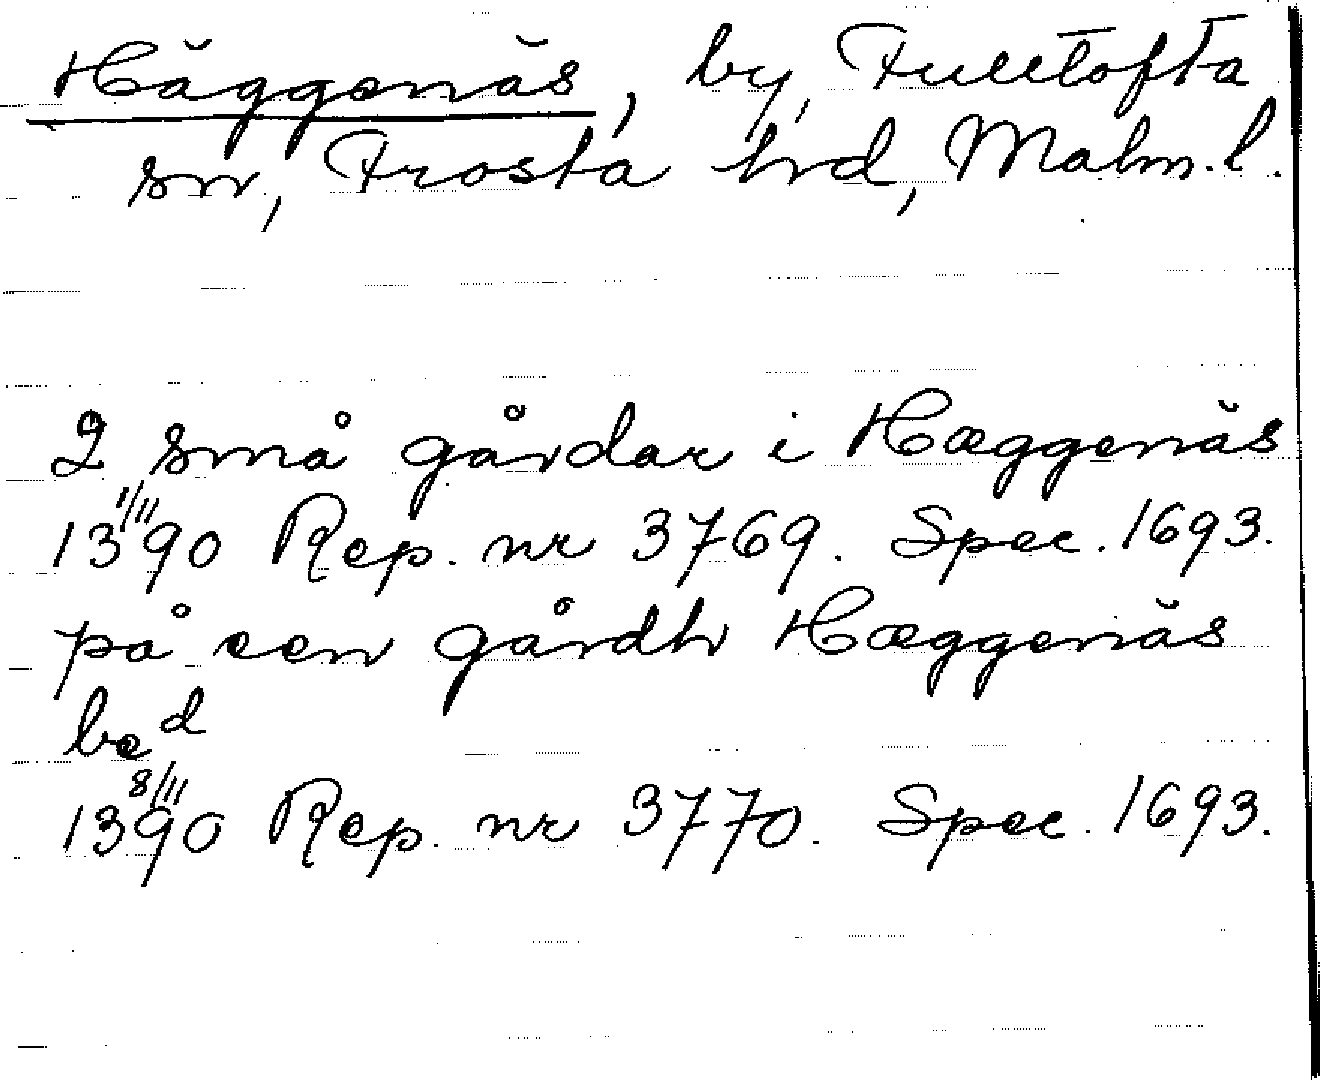 Häggenäs, by, Fulltofta
sn, Frosta hrd, Malm.l.
2 små gårdar i Hæggenäs
1/11 1390 Rep. nr 3769. Spec. 1693.
på een gårdh Hæggenäs
bed
8/11 1390 Rep. nr 3770. Spec. 1693.